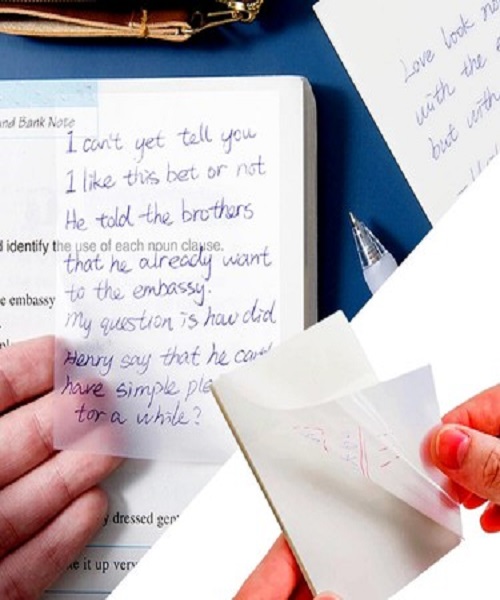 and Bank Note
I can't yet tell you
I like this bet or not
He told the brothers
identify the use of each noun clause.
that he already want
to the embassy.
e embassy
My question is how did
Henry say that he
have simple
for a while?
dressed
it up
Love look
with the
but with